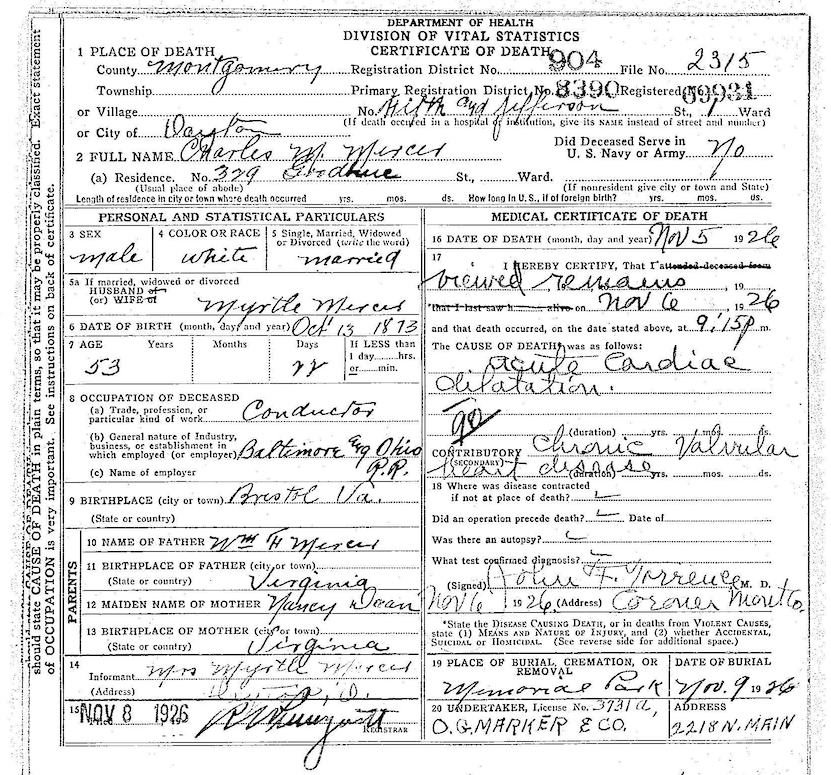 DEPARTMENT OF HEALTH
DIVISION OF VITAL STATISTICS
CERTIFICATE OF DEATH
1 PLACE OF DEATH
County Montgomery Registration District No. 904 File No. 2315
Township Primary Registration District No. 8390 Registered No. 69931
or Village No. Fifth and Jefferson St., 1 Ward
(If death occurred in a hospital or institution, give its NAME instead of street and number)
or City of Dayton
2 FULL NAME Charles M. Mercer Did Deceased Serve in U. S. Navy or Army No
(a) Residence. No. 329 St., Ward.
(Usual place of abode) (If nonresident give city or town and State)
Length of residence in city or town where death occurred yrs. mos. ds. How long in U. S., if of foreign birth? yrs. mos. ds.
should state CAUSE OF DEATH in plain terms, so that it may be properly classified. Exact statement
of OCCUPATION is very important. See instructions on back of certificate.
PERSONAL AND STATISTICAL PARTICULARS
3 SEX male
4 COLOR OR RACE white
5 Single, Married, Widowed or Divorced (write the word) married
5a If married, widowed or divorced
HUSBAND of
(or) WIFE of Myrtle Mercer
6 DATE OF BIRTH (month, day and year) Oct 13 1873
7 AGE Years Months Days If LESS than
1 day hrs.
or min.
53 22
8 OCCUPATION OF DECEASED
(a) Trade, profession, or
particular kind of work Conductor
(b) General nature of Industry,
business, or establishment in
which employed (or employer) Baltimore & Ohio
R.R.
(c) Name of employer
9 BIRTHPLACE (city or town) Bristol Va.
(State or country)
PARENTS
10 NAME OF FATHER Wm H Mercer
11 BIRTHPLACE OF FATHER (city or town)
(State or country) Virginia
12 MAIDEN NAME OF MOTHER Nancy
13 BIRTHPLACE OF MOTHER (city or town)
(State or country) Virginia
14
Informant Mrs Myrtle Mercer
(Address) Dayton, O.
15 NOV 8 1926
REGISTRAR
MEDICAL CERTIFICATE OF DEATH
16 DATE OF DEATH (month, day and year) Nov 5 1926
17
I HEREBY CERTIFY, That I attended deceased from
viewed remains , 19
that I last saw h alive on Nov 6 1926
and that death occurred, on the date stated above, at 9:15 p m.
The CAUSE OF DEATH* was as follows:
acute Cardiac
dilatation.
90
(duration) yrs. mos. ds.
CONTRIBUTORY Chronic Valvular
(SECONDARY) heart disease
(duration) yrs. mos. ds.
18 Where was disease contracted
if not at place of death?
Did an operation precede death? Date of
Was there an autopsy?
What test confirmed diagnosis?
(Signed) John F. Torrence M. D.
Nov 6 1926, (Address) Coroner Mont Co.
*State the DISEASE CAUSING DEATH, or in deaths from VIOLENT CAUSES,
state (1) MEANS AND NATURE OF INJURY, and (2) whether ACCIDENTAL,
SUICIDAL or HOMICIDAL. (See reverse side for additional space.)
19 PLACE OF BURIAL, CREMATION, OR REMOVAL
Memorial Park
DATE OF BURIAL
Nov. 9 1926
20 UNDERTAKER, License No. 3731a,
O.G. MARKER & CO.
ADDRESS
2218 N. MAIN